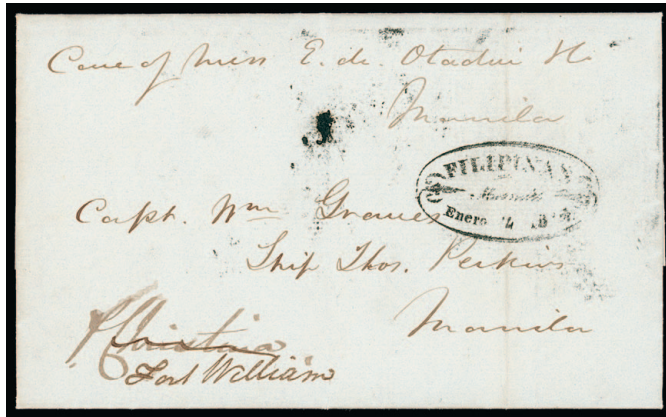 Care of Mess E. de Otadui & Co
Manila
FILIPINAS
Manila
Enero
Capt. Wm Graves
Ship Thos. Perkins
Manila
Christina
Fort William